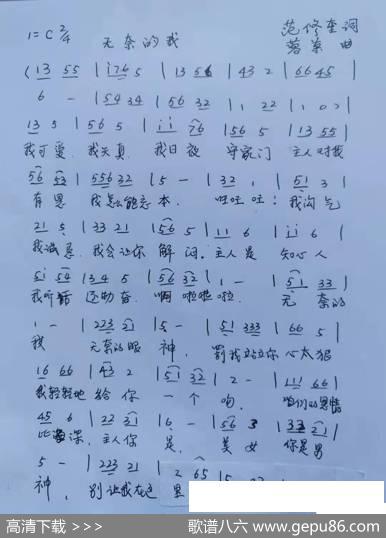 1=C 2/4 无奈的我 范修奎词
曲
(13 55 | i76 5 | 13 56 | 43 2 | 66 45 |
6 - | 54 34 | 56 32 | 1 22 | 1 0) |
13 5 | 56 5 | ii 76 | 56 5 | 13 55 |
我可爱 我天真 我日夜 守家门 主人对我
56 53 | 556 32 | 5 - | 32 1 | 51 3 |
有恩 我怎么能忘本. 旺旺旺: 我淘气
21 5 | 33 21 | 56 5 | 11 6 | ii 6 |
我诚恳. 我会让你 解闷. 主人是 知心人
51 54 | 134 5 | 56 32 | 1 - | 51 33 |
我听话 还勤奋. 啊啦啦啦. 无奈的
1 - | 223 21 | 5 - | 51 333 | 66 5 |
我 无奈的眼 神, 罚我站立你 心太狠
16 66 | 43 2 | 51 32 | 2 - | 111 66 |
我轻轻地 给你 一个 吻. 咱们的恩情
45 6 | 22 31 | 6 - | 56 3 | 333 21 |
比深. 主人你 是, 美女 你是男
5 - | 223 21 | 2 65 | 5
神, 别让我在这里
高清下载 >>> 歌谱八六 www.gepu86.com